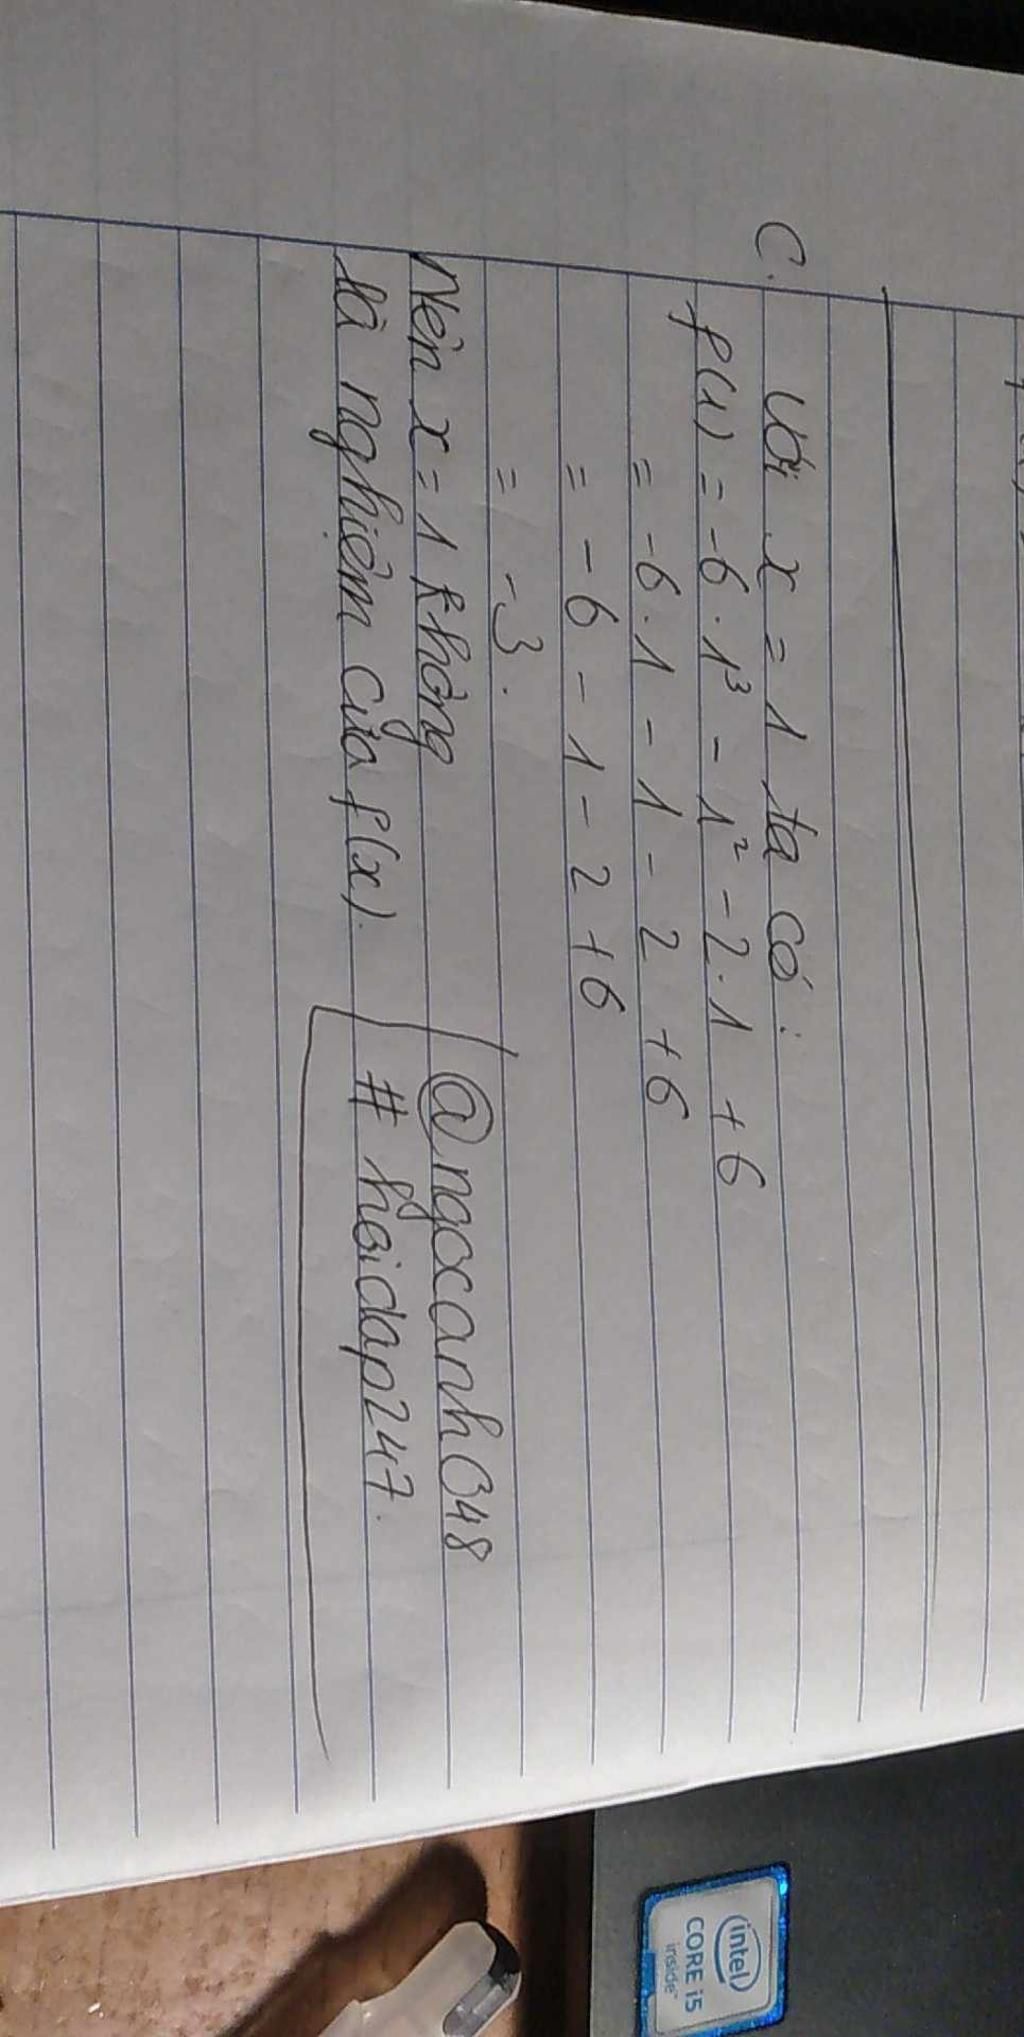 C. Với x = 1 ta có:
f(1) = -6 . 1³ - 1² - 2 . 1 + 6
= -6 . 1 - 1 - 2 + 6
= - 6 - 1 - 2 + 6
= -3.
Nên x = 1 không
là nghiệm của f(x).
@ngocanh0348
# hoidap247.
intel
CORE i5
inside™